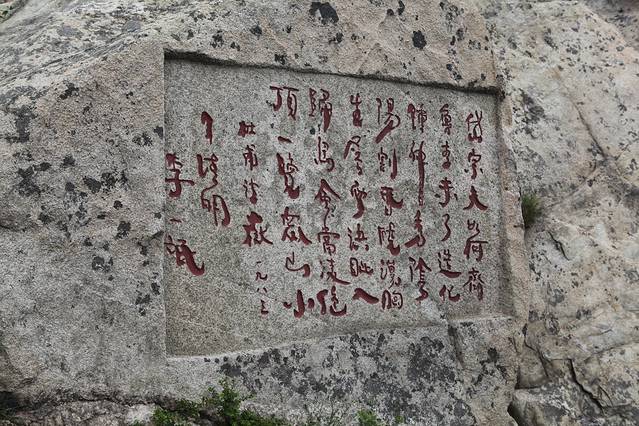 岱宗夫如何齊
魯青未了造化
鍾神秀陰
陽割昏曉蕩胸
生層雲決眥入
歸鳥會當凌絕
頂一覽衆山小
杜甫望嶽 一九八三
年清明
李一氓